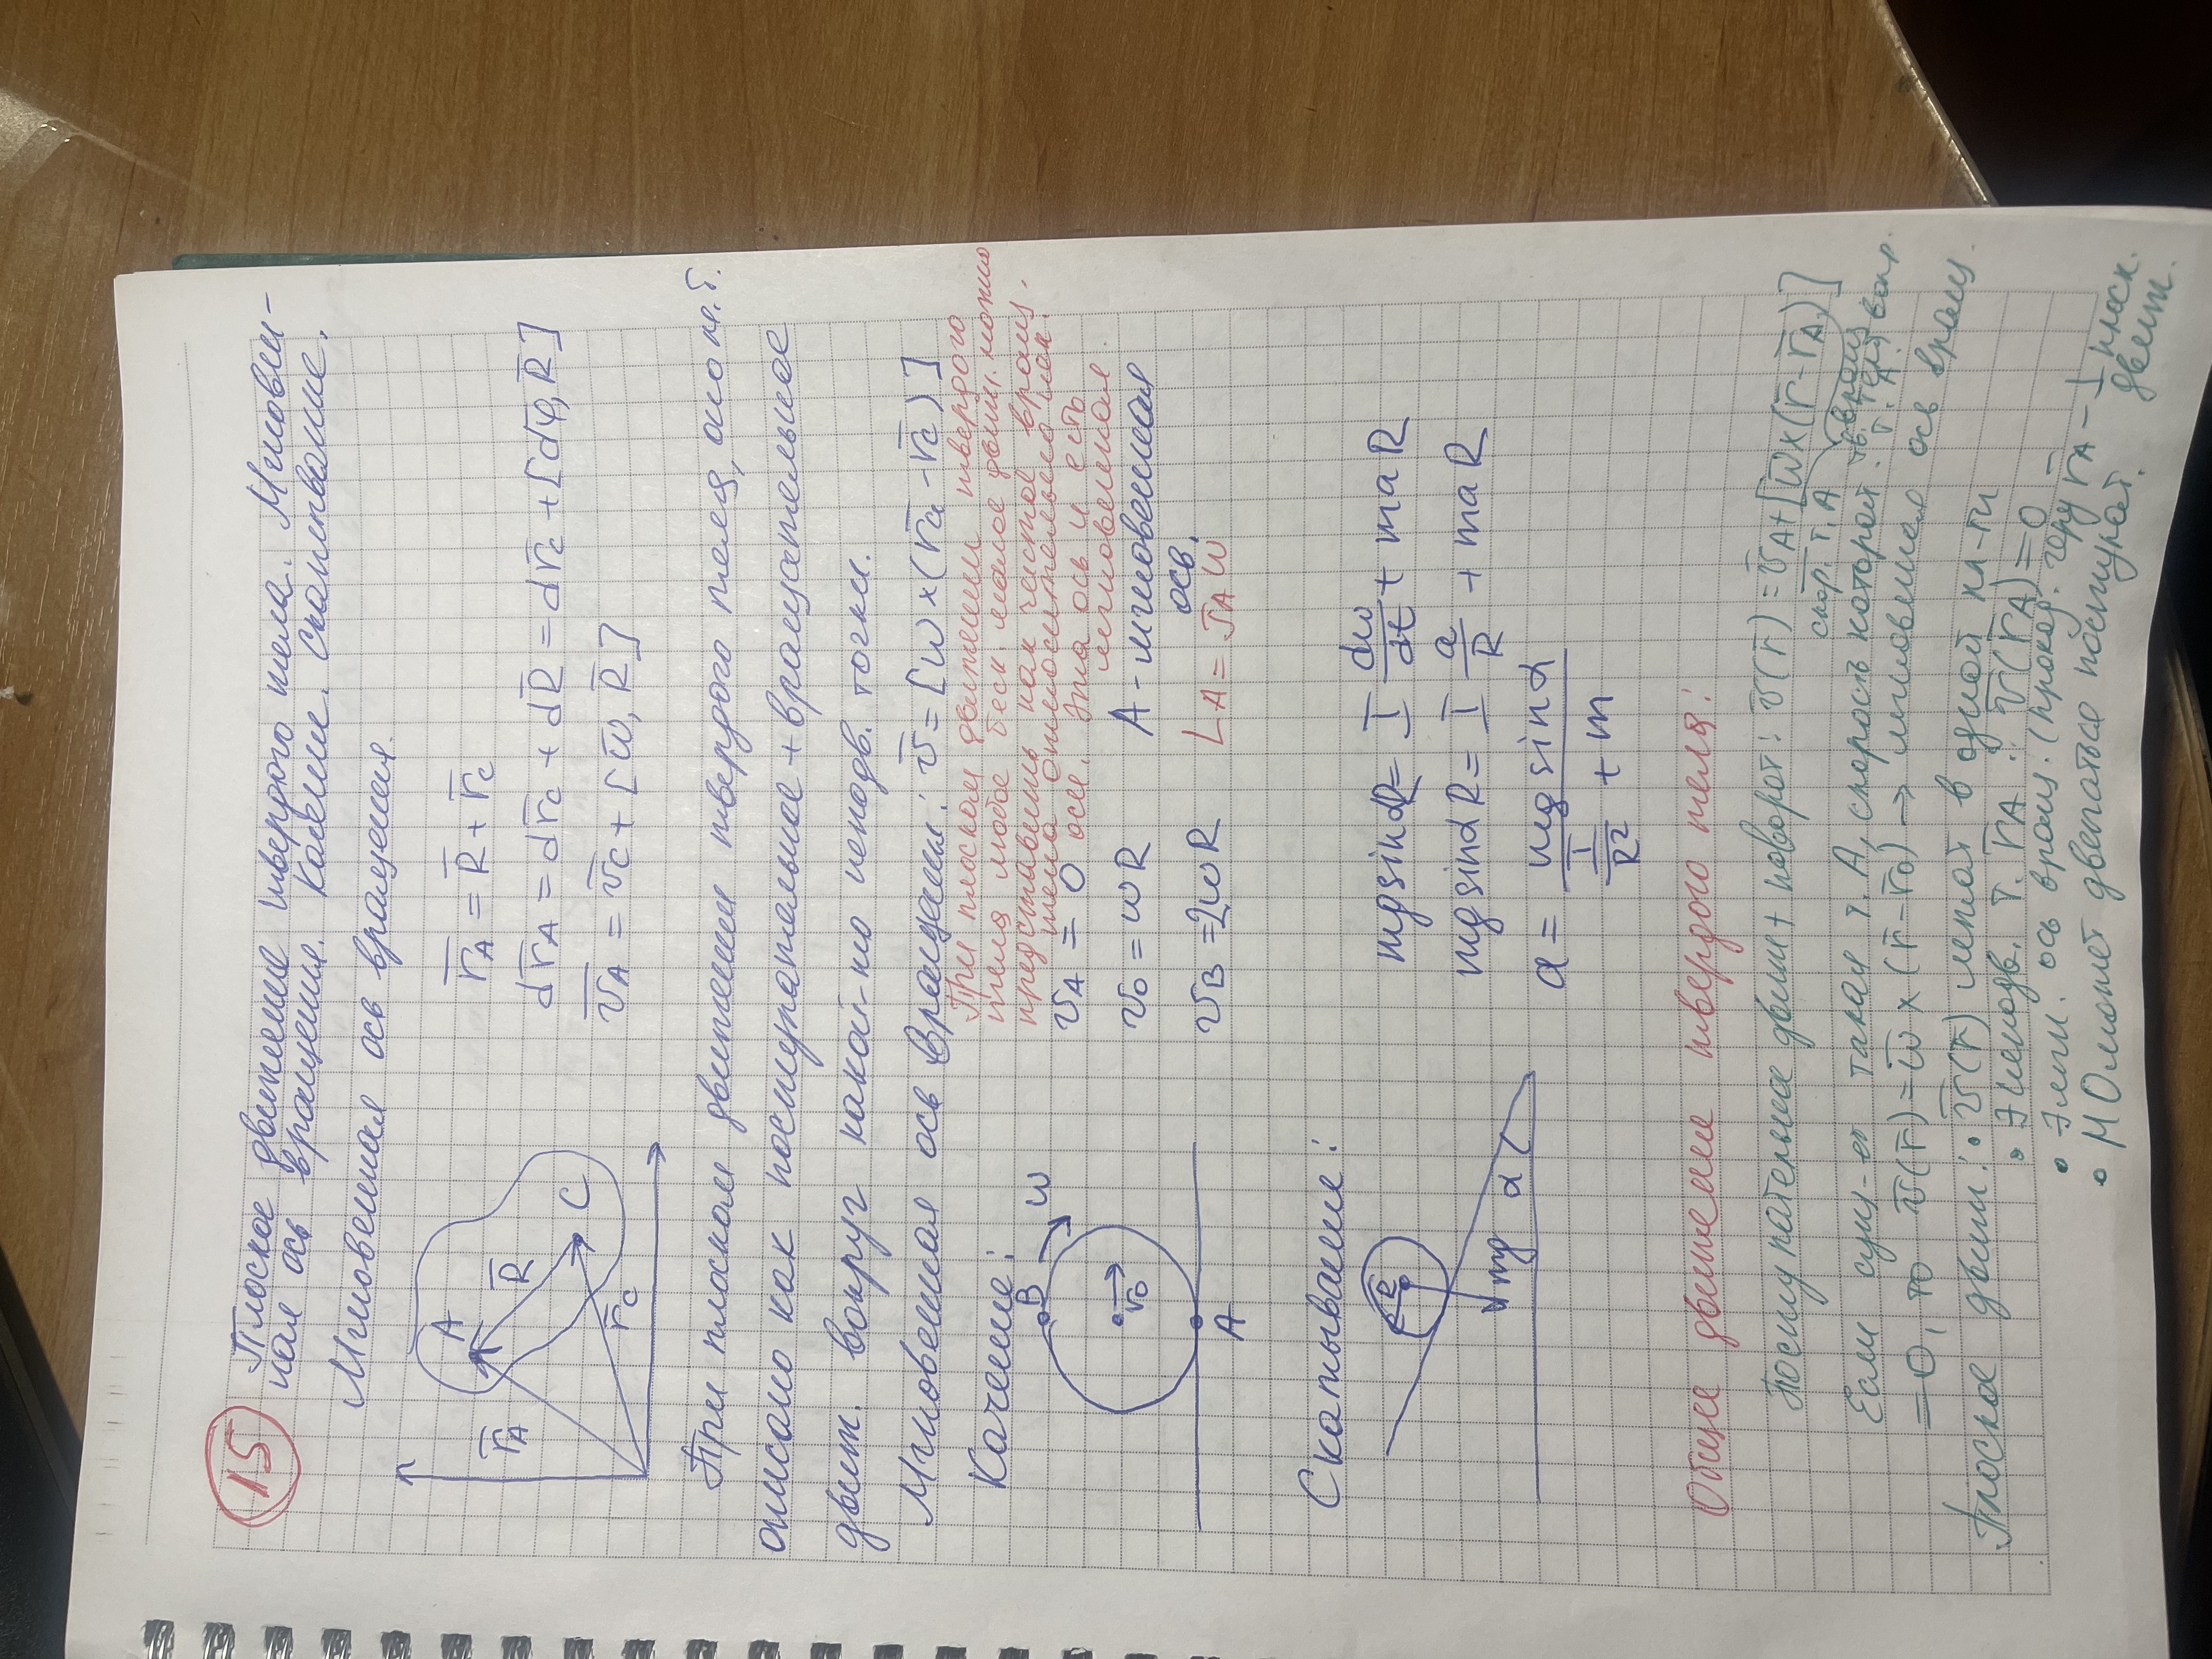 15
Плоское движение твердого тела. Мгновен-
ная ось вращения. Качение. Скатывание.
Мгновенная ось вращения.
A
r̄A
R̄
C
r̄c
r̄A = R̄ + r̄c
dr̄A = dr̄c + dR̄ = dr̄c + [dφ̄, R̄]
v̄A = v̄c + [ω̄, R̄]
При плоском движении твердого тела, оно м.б.
описано как поступательное + вращательное
движ. вокруг какой-то неподв. точки.
Мгновенная ось вращения: v̄ = [ω × (r̄a - r̄c)]
При плоском движении твердого
тела любое беск. малое движ. можно
представить как чистое вращ.
тела относительно нек.
оси. Эта ось и есть
мгновенная.
Качение:
B
ω
v̄0
A
vA = 0
v0 = ωR
A - мгновенная
ось.
vB = 2ωR
LA = JAω
Скатывание:
R
mg
α
mg sinα R = I dω/dt + maR
mg sinα R = I a/R + maR
a = mg sinα / (I/R² + m)
Общее движение твердого тела:
Поступательное движ + поворот: v̄(r̄) = v̄A + [ω̄ × (r̄ - r̄A)]
скор. т. A
вращ.
тв. тела вокр.
т. A.
Если сущ-ет такая т. A, скорость которой
= 0, то v̄(r̄) = ω̄ × (r̄ - r̄0) → мгновенная ось вращ.
Плоское движ: • v̄(r̄) лежат в одной пл-ти
• ∃ неподв. т. r̄A : v̄(r̄A) = 0
• ∃ мгн. ось вращ. (проход. через r̄A - ⊥ плоск.
движ.
• МО может двигаться поступат.